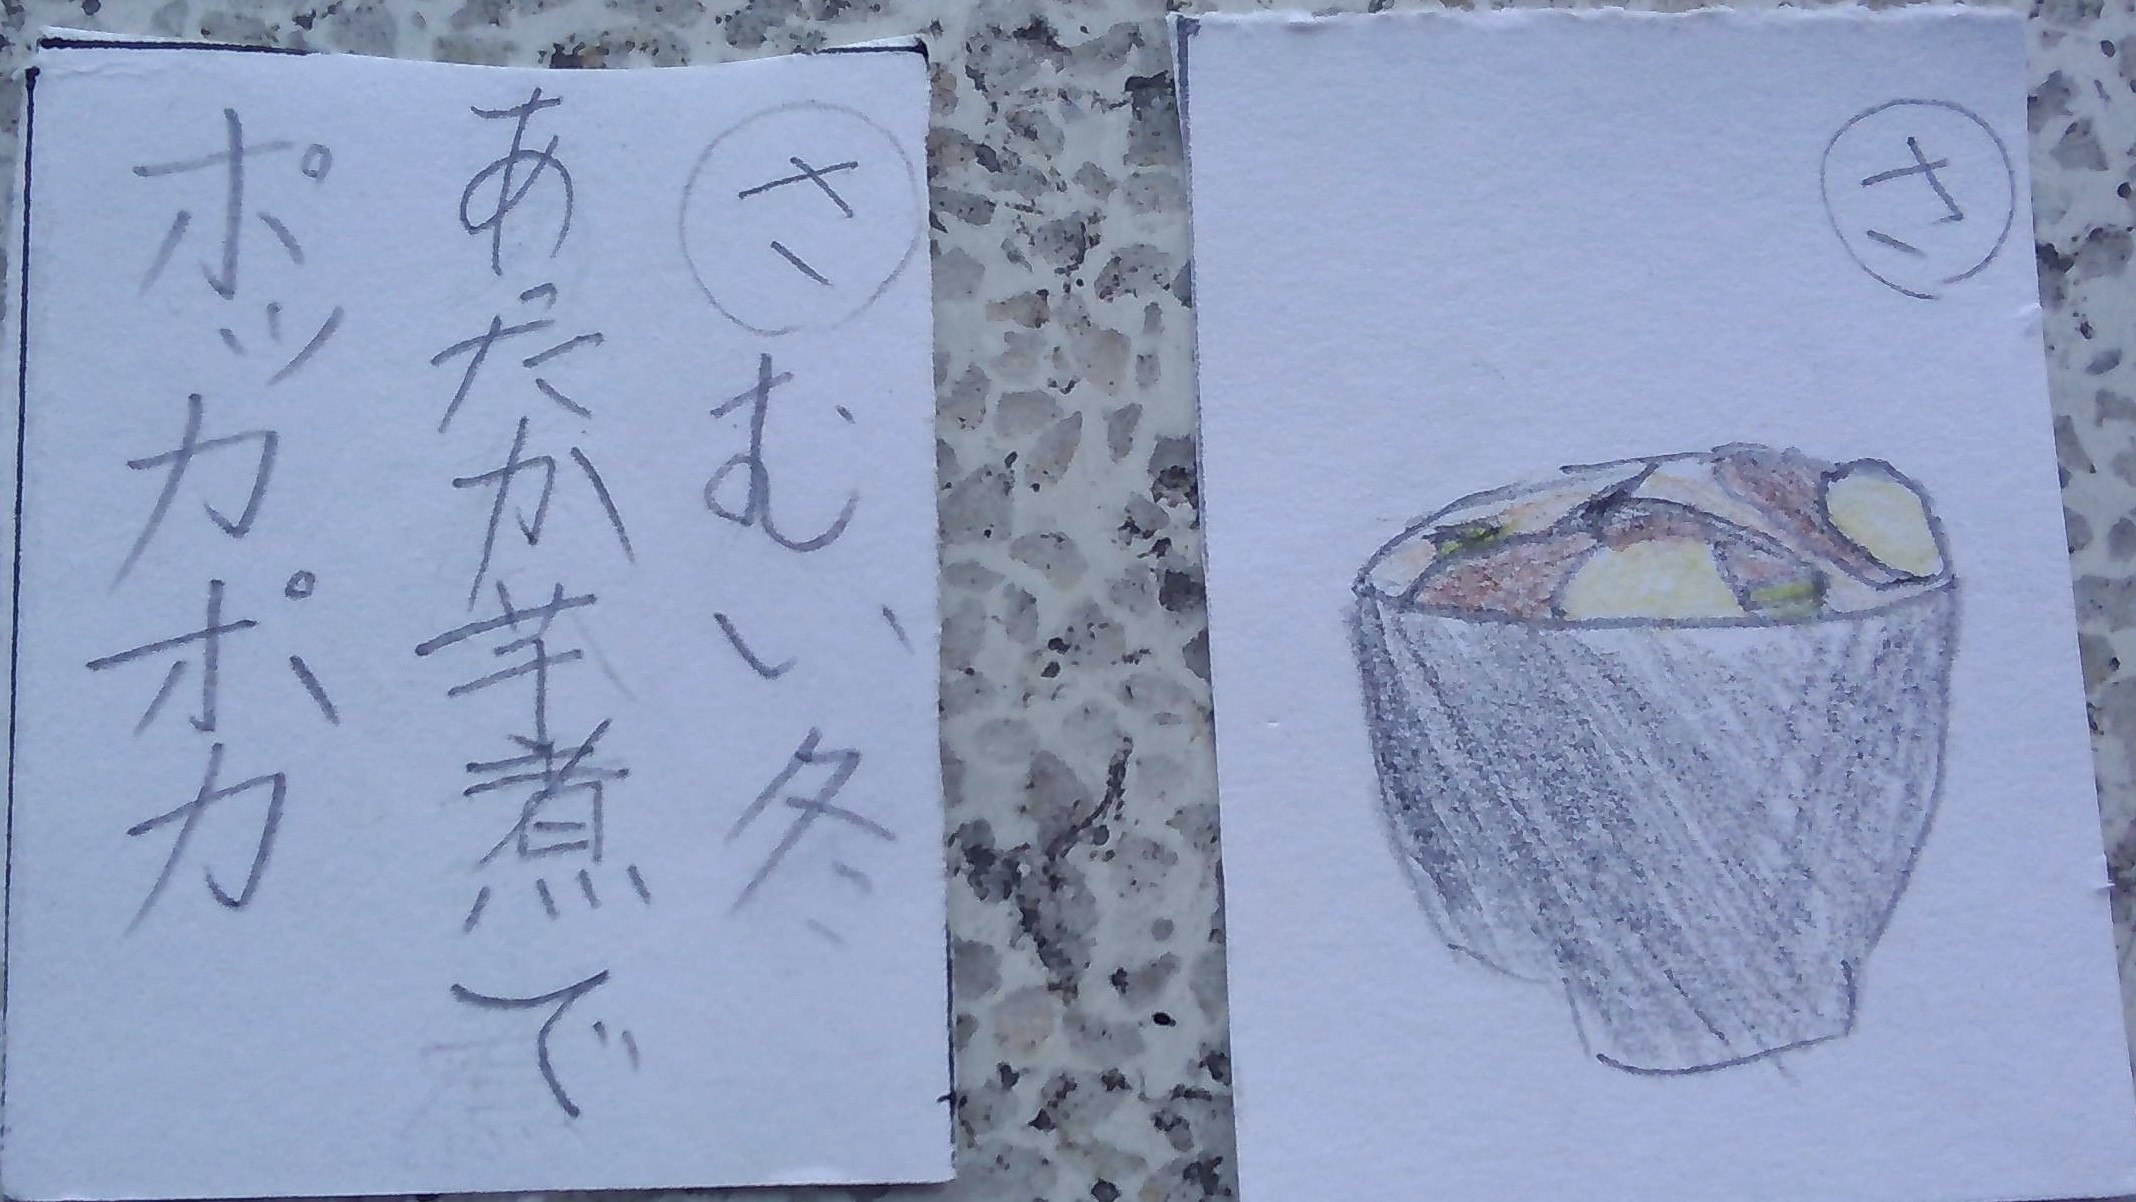 さむい冬
あたか芋煮で
ポッカポカ
さ